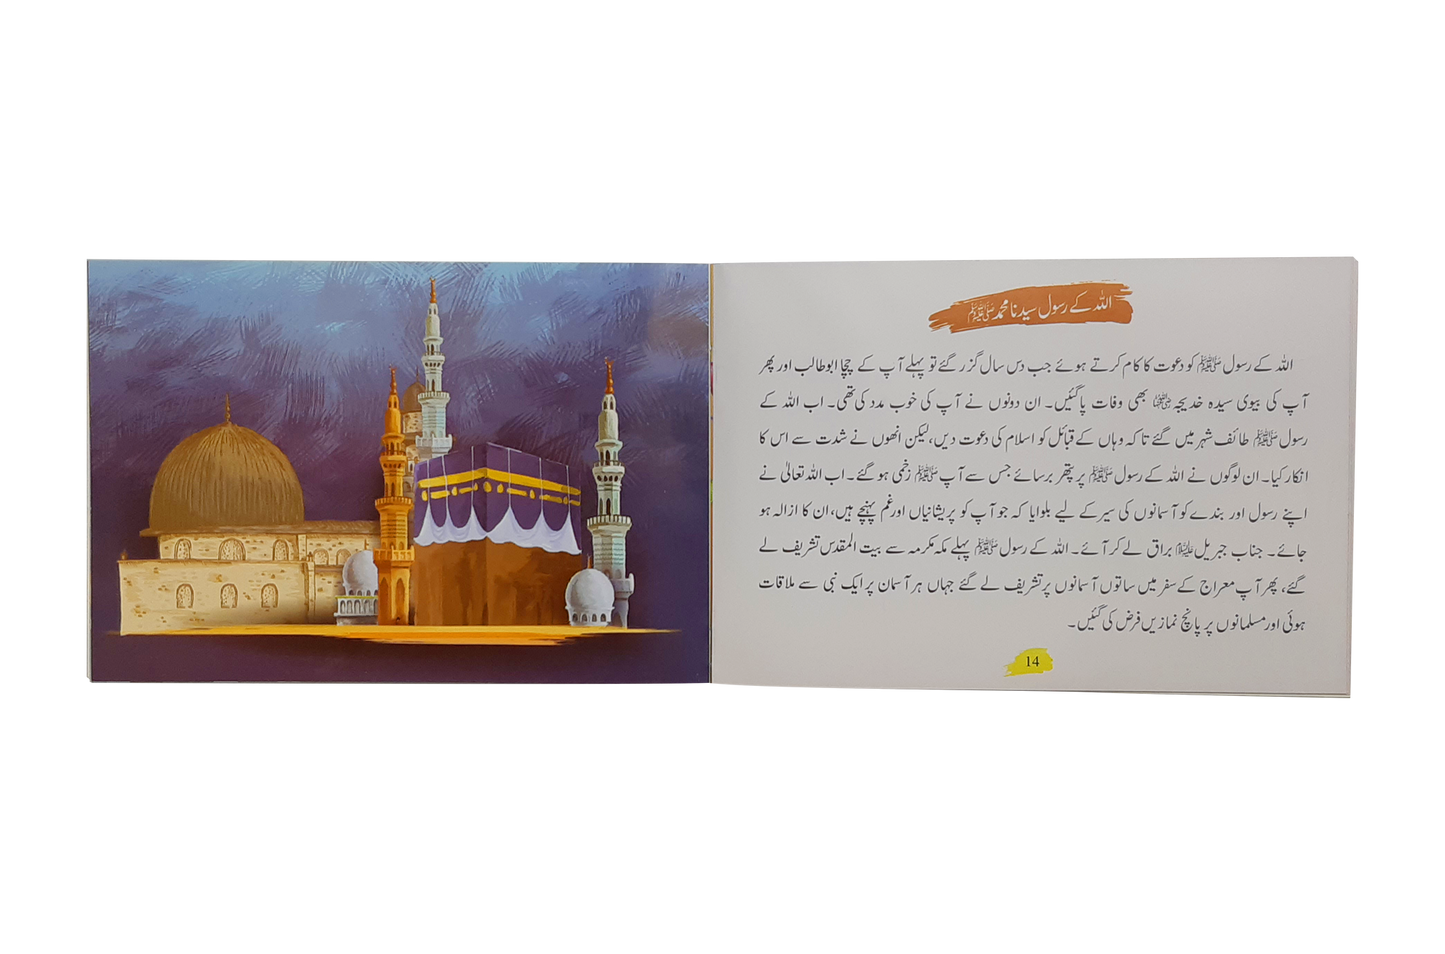 اللہ کے رسول سیدنا محمد ﷺ
اللہ کے رسول ﷺ کو دعوت کا کام کرتے ہوئے جب دس سال گزر گئے تو پہلے آپ کے چچا ابوطالب اور پھر
آپ کی بیوی سیدہ خدیجہ رضی اللہ عنہا بھی وفات پا گئیں۔ ان دونوں نے آپ کی خوب مدد کی تھی۔ اب اللہ کے
رسول ﷺ طائف شہر میں گئے تاکہ وہاں کے قبائل کو اسلام کی دعوت دیں، لیکن انھوں نے شدت سے اس کا
انکار کیا۔ ان لوگوں نے اللہ کے رسول ﷺ پر پتھر برسائے جس سے آپ ﷺ زخمی ہو گئے۔ اب اللہ تعالیٰ نے
اپنے رسول اور بندے کو آسمانوں کی سیر کے لیے بلوایا کہ جو آپ کو پریشانیاں اور غم پہنچے ہیں، ان کا ازالہ ہو
جائے۔ جناب جبریل علیہ السلام براق لے کر آئے۔ اللہ کے رسول ﷺ پہلے مکہ مکرمہ سے بیت المقدس تشریف لے
گئے، پھر آپ معراج کے سفر میں ساتوں آسمانوں پر تشریف لے گئے جہاں ہر آسمان پر ایک نبی سے ملاقات
ہوئی اور مسلمانوں پر پانچ نمازیں فرض کی گئیں۔
14